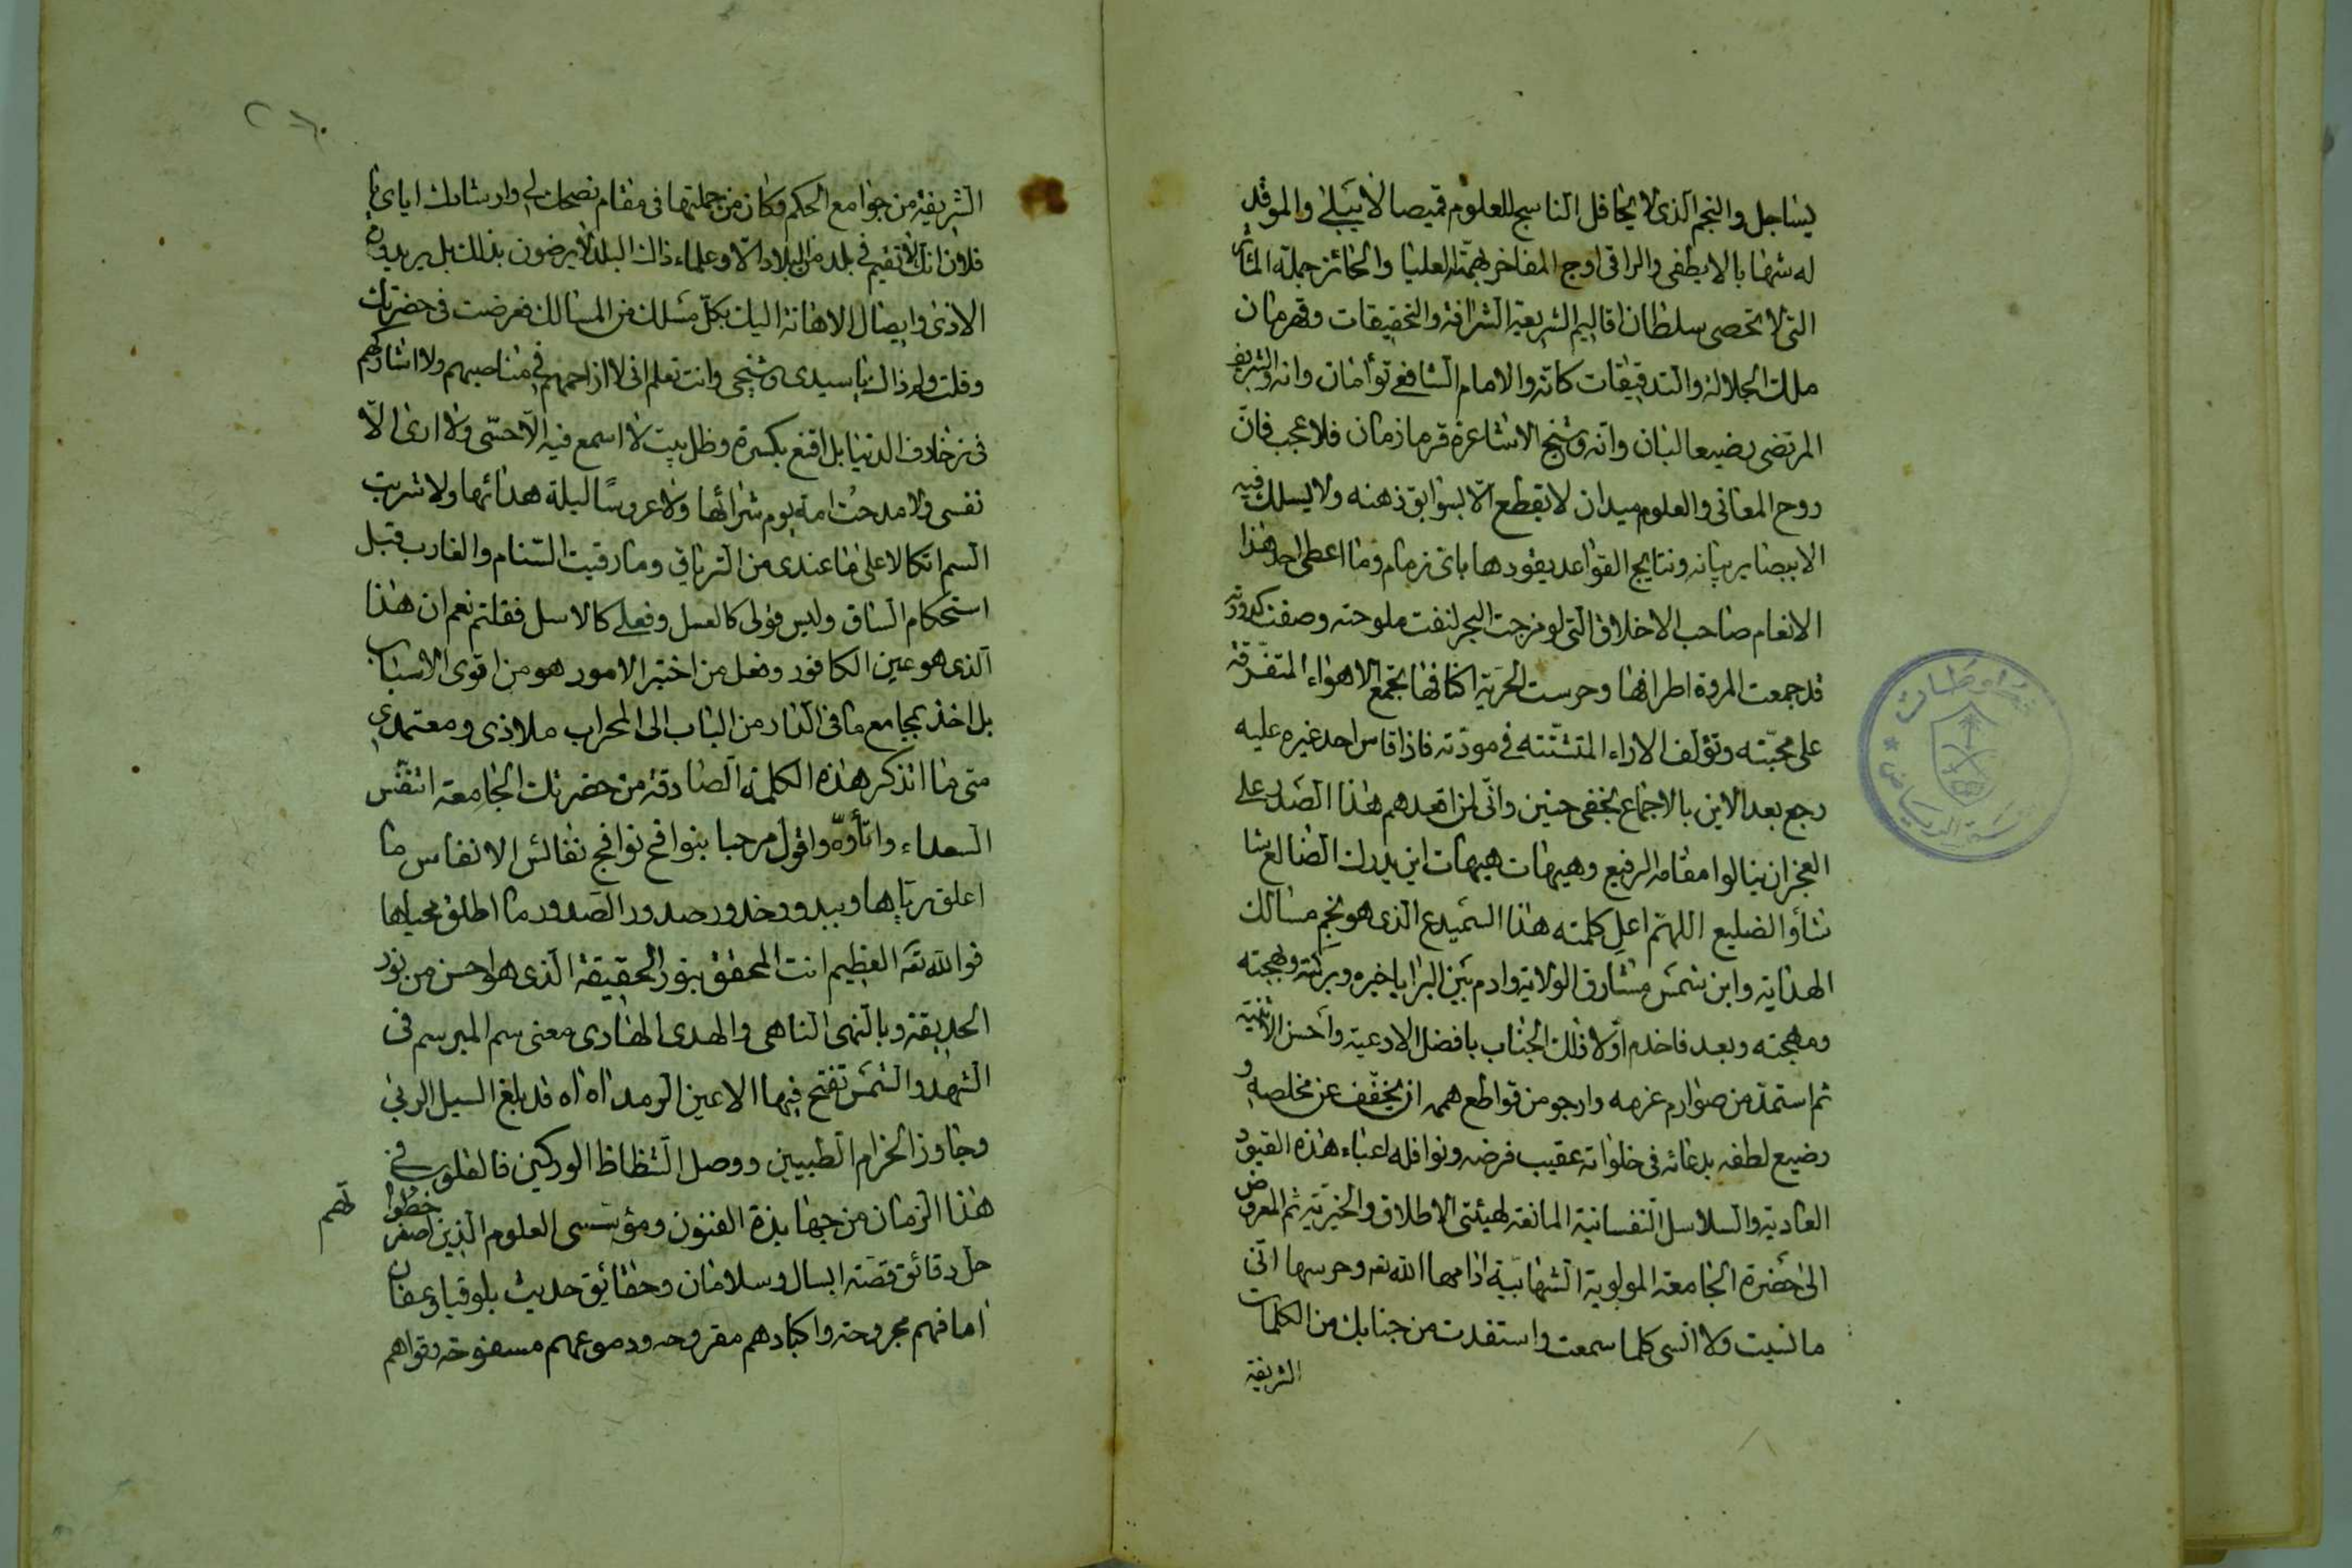 يساجل والنجم الذي لا يحافل الناسج للعلوم قميصا لا يبلى والموقد
له شهابا لا يطفى والراقى اوج المفاخر بهمته العليا والحائز جملة المآثر
التى لا تحصى سلطان اقاليم الشريعة الشرافة والتحقيقات وقهرمان
ملك الجلالة والتدقيقات كانه والامام الشافعي توأمان وانه والشريف
المرتضى رضيعا لبان وانه وشيخ الاشاعرة قرما زمان فلا عجب فان
روح المعانى والعلوم ميدان لا يقطع الا بسوابق ذهنه ولا يسلك فيه
الا ببصاير بيانه ونتايج القواعد يقودها باى زمام وما اعطى احد هذا
الانعام صاحب الاخلاق التى لو مزجت البحر لنفت ملوحته وصفت كدورته
قد جمعت المروة اطرافها وحرست الحرية اكنافها تجمع الاهواء المتفرقة
على محبته وتؤلف الاراء المتشتته في مودته فاذا قاس احد غيره عليه
رجع بعد الاين بالاجماع بخفى حنين وانى لمن اقعدهم هذا الصدر على
العجز ان ينالوا مقامه الرفيع وهيهات هيهات اين يدرك الضالع شا
شأو الضليع اللهم اعل كلمته هذا السميدع الذى هو نجم مسالك
الهداية وابن شمس مشارق الولاية وادم بين البرايا خيره وبركته وبهجته
ومهجته وبعد فاخدم اولا ذلك الجناب بافضل الادعية واحسن الاثنية
ثم استمد من صوارم عزمه وارجو من قواطع هممه ان يخفف عن مخلصه و
رضيع لطفه بدعائه فى خلواته عقيب فرضه ونوافله اعباء هذه القيود
العادية والسلاسل النفسانية المانعة لهيئتى الاطلاق والخيرية ثم المعروض
الى حضرة الجامعة المولوية الشهابية ادامها الله تعه وحرسها انى
ما نسيت ولا انسى كلما سمعت واستفدت من جنابك من الكلمات
الشريفة
الشريفة من جوامع الحكم وكان من جملتها فى مقام نصحك لي وارشادك اياى يا
فلان انك لا تقيم في بلد من البلاد الا وعلماء ذاك البلد لا يرضون بذلك بل يريدون
الاذى وايصال الاهانة اليك بكل مسلك من المسالك فعرضت فى حضرتك
وقلت ولم ذاك يا سيدى وشيخي وانت تعلم انى لا ازاحمهم في مناصبهم ولا اشاركهم
فى زخارف الدنيا بل اقنع بكسرة وظل بيت لا اسمع فيه الا حسى ولا ارى الا
نفسى ولا مدحت امة يوم شرائها ولا عروسا ليلة هدائها ولا شربت
السم اتكالا على ما عندى من الترياق وما رقيت السنام والغارب قبل
استحكام الساق وليس قولى كالعسل وفعلي كالاسل فقلتم نعم ان هذا
الذى هو عين الكافور وفعل من اختبر الامور هو من اقوى الاسباب
بل اخذ بمجامع ما فى الدار من الباب الى المحراب ملاذى ومعتمدي
متى ما اتذكر هذه الكلمة الصادقة من حضرتك الجامعة اتنفس
السعداء واتأوه واقول مرحبا بنوافح نوافج نفائس الانفاس ما
اعلق رياها وببدور خدور صدور الصدور ما اطلق محياها
فوالله تعه العظيم انت المحقق بنور الحقيقة الذى هو احسن من نور
الحديقة وبالنهى الناهى والهدى الهادى معنى سم المبرسم فى
الشهد والشمس تفتح فيها الاعين الرمد اه اه قد بلغ السيل الربى
وجاوز الحزام الطبيين ووصل الشظاظ الوركين فالقلوب في
هذا الزمان من جهابذة الفنون ومؤسسى العلوم الذين خطوا صفر
لهم
حل دقائق قصة ابسال وسلامان وحقايق حديث بلوقيا وعفان
اما فهم مجروحة واكبادهم مقروحه ودموعهم مسفوحة وقواهم